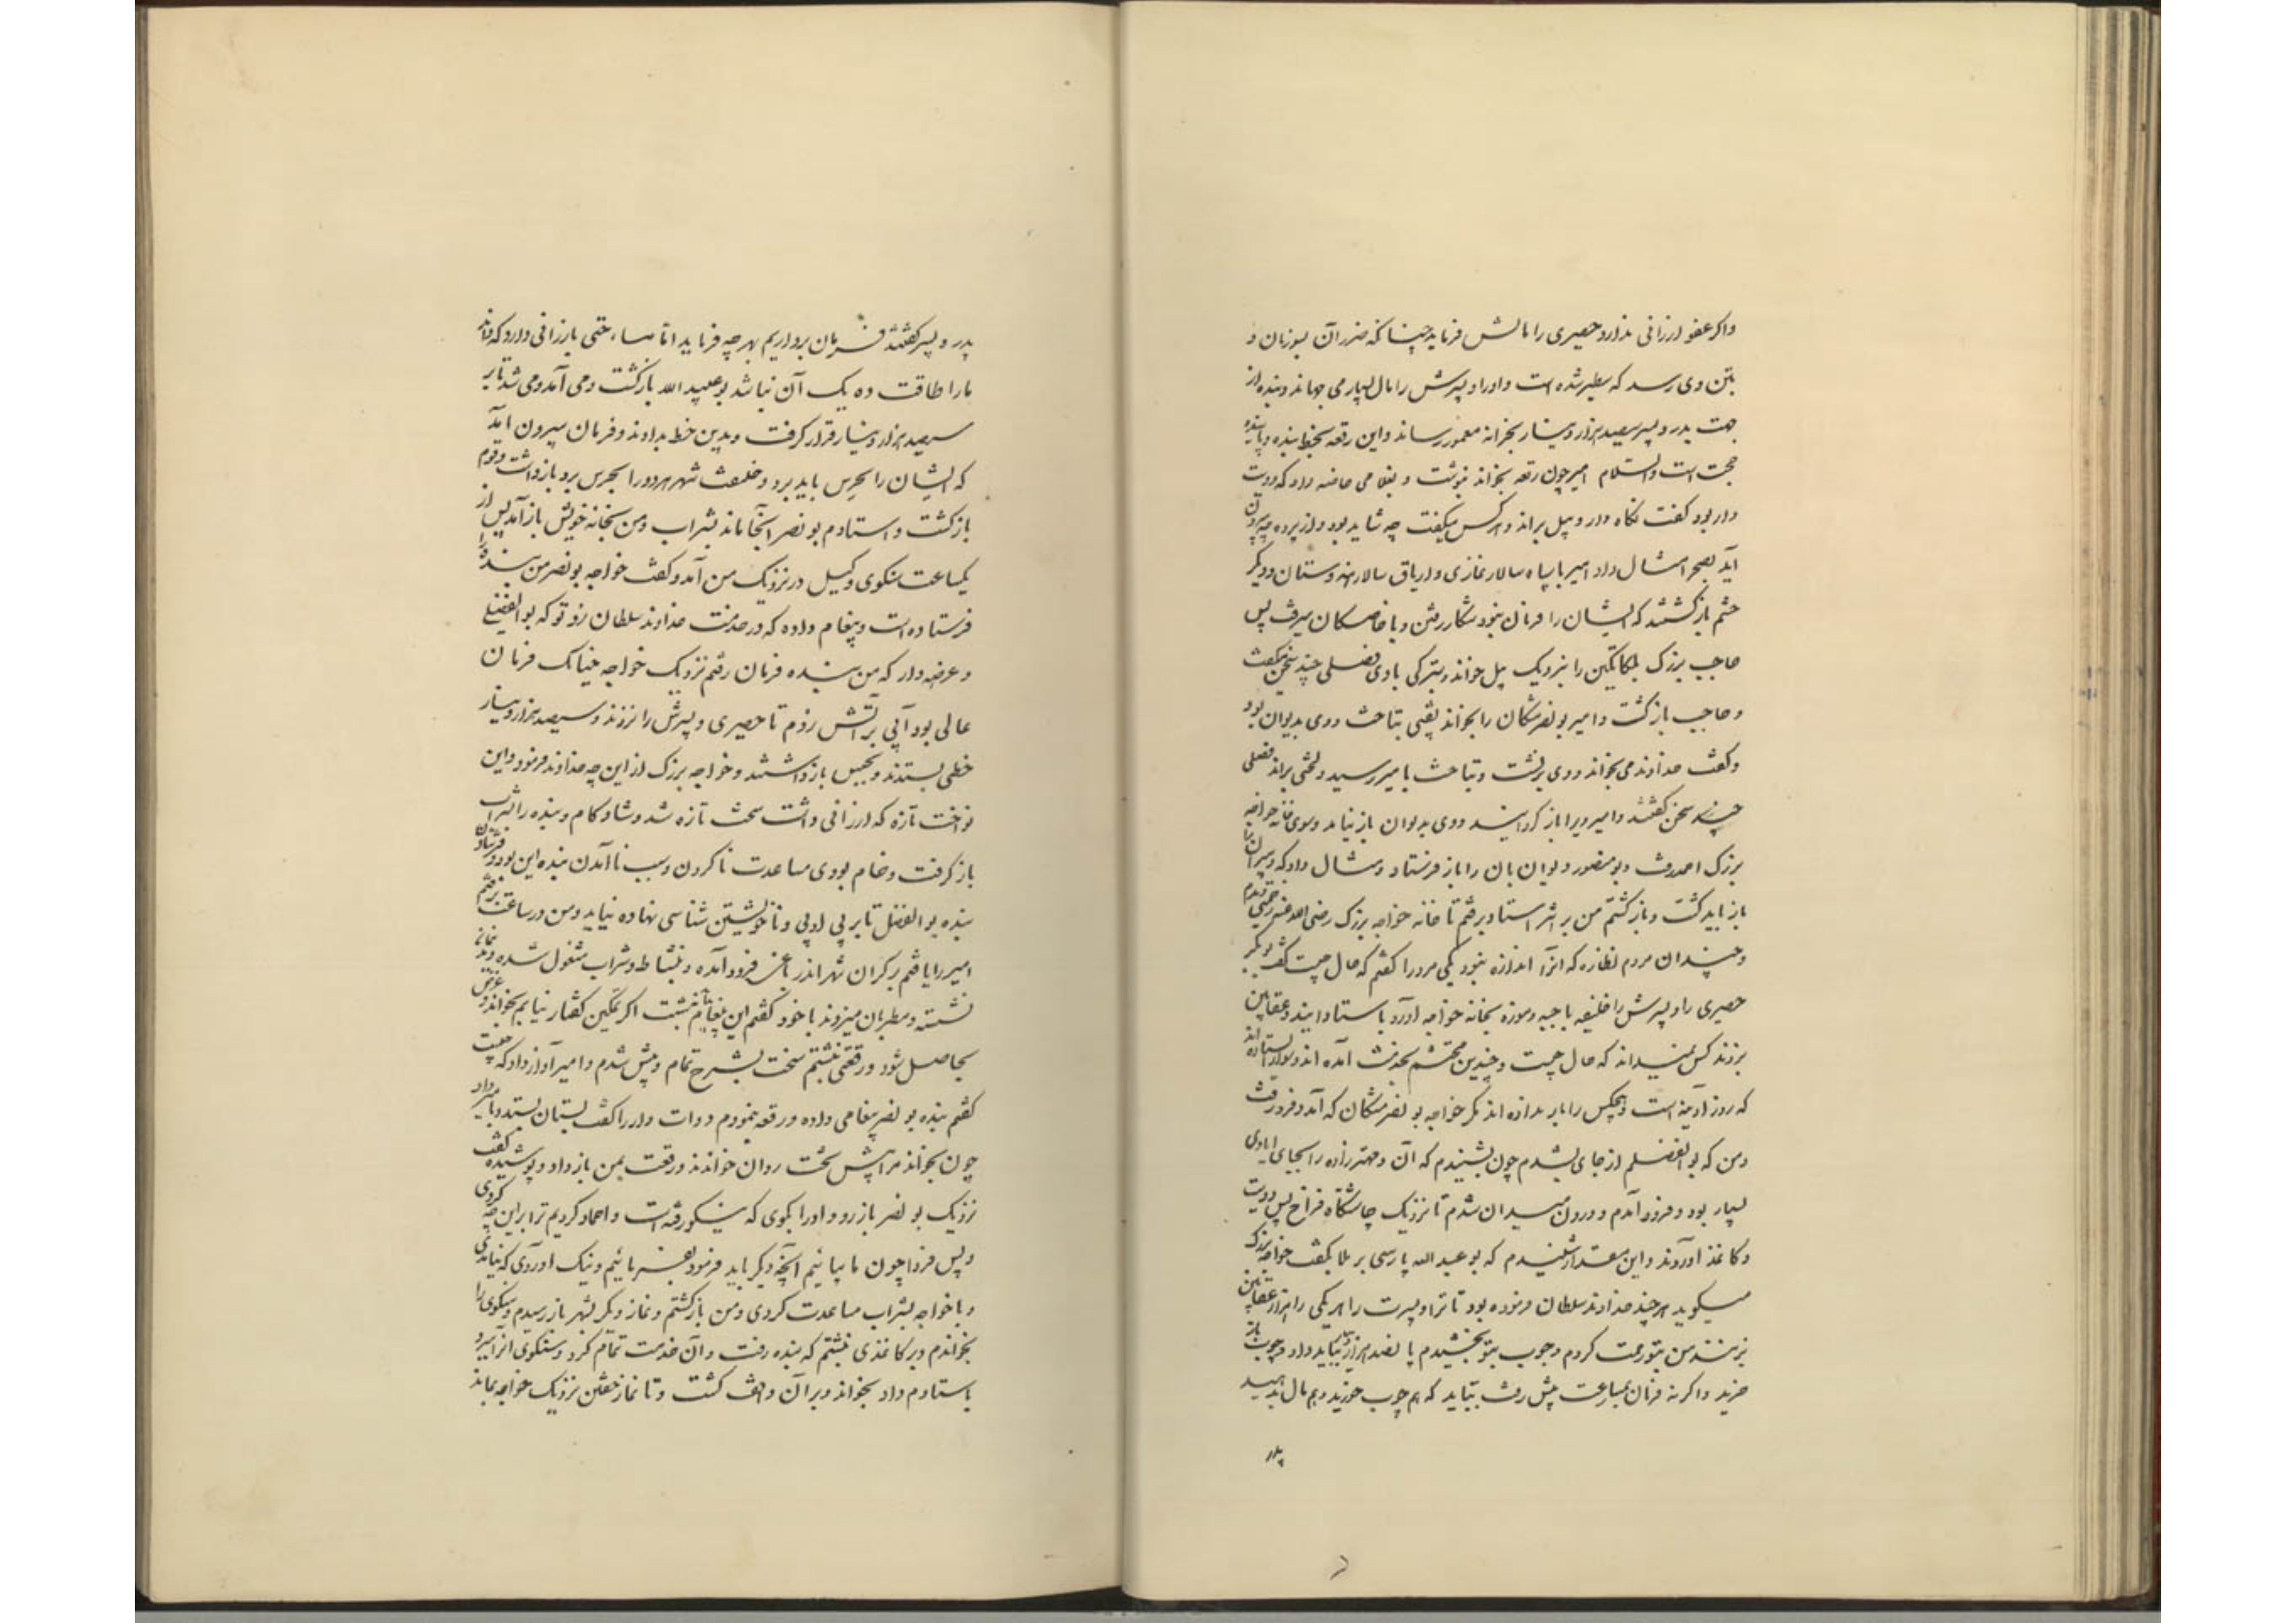 واکر عفو ارزانی ندارد حصیری را مالش فرماید چنانکه ضرر آن بسوزیان و
بتن وی رسد که بطیر شده است و او را و پسرش را مال بسیار می جهاند و بنده از
جهت پدر و پسر سیصد هزار دینار بخزانه معمور رساند و این رقعه بخط بنده با بنده
حجت است والسلام امیر چون رقعه بخواند بنوشت و بغلامی خاصه داد که دویت
دار بود گفت نگاه دار و پیل براند و هر کس میگفت چه شاید بود و از پرده چه بیرون
آید بصحرا مثال داد امیر با سپاه سالار غازی و اریاق سالار هندوستان و دیگر
حشم بازگشتند که ایشان را فرمان نبود بشکار رفتن و با خاصگان میرفت پس
حاجب بزرگ بلکاتگین را بنزدیک پیل خواند و بترکی با وی فصلی چند سخن بگفت
و حاجب بازگشت و امیر بو نصر مشکان را بخواند نقیبی بتاخت و وی بدیوان بود
و گفت خداوند می بخواند و وی برنشست و بتاخت با میر رسید و لختی براند فصلی
چند سخن گفتند و امیر ویرا باز گردانید و وی بدیوان باز نیامد و سوی خانه خواجه
بزرگ احمد رفت و بو منصور دیوان بان را باز فرستاد و مثال داد که دبیران را
باز باید گشت و بازگشتم من بر اثر استاد برفتم تا خانه خواجه بزرگ رضی الله عنه زحمتی دیدم
و چندان مردم نظاره که آنرا اندازه نبود یکی مرد را گفتم که حال چیست گفت بو بکر
حصیری را و پسرش را خلیفه با جبه و موزه بخانه خواجه آورد باستادانیدند و عقابین
بزدند کس نمیداند که حال چیست و چندین محتشم بخدمت آمده اند و سوار ایستاده اند
که روز آدینه است و هیچکس را بار نداده اند مگر خواجه بو نصر مشکان که آمد و فرو رفت
و من که بو الفضلم از جای بشدم چون بشنیدم که آن و مهتر زاده را بجای ایادی
بسیار بود و فرود آمدم و درون میدان شدم تا نزدیک چاشتگاه فراخ پس دویت
و کاغذ آوردند و این مقدار شنیدم که بو عبد الله پارسی بر ملا بگفت خواجه بزرگ
میگوید هر چند خداوند سلطان فرموده بود تا ترا و پسرت را هر یکی را هزار عقابین
بزنند من بتو رحمت کردم و چوب بتو بخشیدم پانصد هزار دینار بباید داد و چوب باز
خرید و اگر نه فرمان بمسارعت پیش رفت نباید که هم چوب خورید و هم مال بدهید
پدر
پدر و پسر گفتند فرمان برداریم بهر چه فرماید اما مسامحتی بارزانی دارد که داند
ما را طاقت ده یک آن نباشد بو عبید الله بازگشت و می آمد و می شد تا بر
سیصد هزار دینار قرار گرفت و بدین خط بدادند و فرمان بیرون آمد
که ایشان را بحرس باید برد و خلیفت شهر هر دو را بحرس برد و بازداشت و قوم
بازگشت و استادم بو نصر آنجا بماند بشراب و من بخانه خویش باز آمدم پس از
یکساعت سنکوی وکیل در نزدیک من آمد و گفت خواجه بو نصر من بنده را
فرستاده است و پیغام داده که در خدمت خداوند سلطان رو تو که بو الفضلی
و عرضه دار که من بنده فرمان رفتم نزدیک خواجه چنانک فرمان
عالی بود آبی بر آتش زدم تا حصیری و پسرش را نزدند و سیصد هزار دینار
خطی بستدند و بحبس بازداشتند و خواجه بزرگ از این چه خداوند فرمود و این
نواخت تازه که ارزانی داشت سخت تازه شد و شاد کام و بنده را بشراب
باز گرفت و خام بودی مساعدت نا کردن و سبب نا آمدن بنده این بود و فرستادن
بنده بو الفضل تا بر بی ادبی و نا خویشتن شناسی نهاده نیاید و من در ساعت برفتم
امیر را یافتم بر کران شهر اندر باغی فرود آمده و بنشاط و شراب مشغول شده و ندما
نشسته و مطربان میزدند با خود گفتم این پیغام بباید نبشت اگر تمکین گفتار نیابم بخواند و غرض
بحاصل شود و رقعتی نبشتم سخت بشرح تمام و پیش شدم و امیر آواز داد که چیست
گفتم بنده بو نصر پیغامی داده و رقعه بنمودم دوات دار را گفت بستان بستد و با میر داد
چون بخواند مرا پیش تخت روان خواندند و رقعت بمن باز داد و پوشیده گفت
نزدیک بو نصر باز رو و او را بگوی که نیکو رفته است و احماد کردیم ترا بر این چه کردی
و پس فردا چون ما بیائیم آنچه دیگر باید فرمود بفرمائیم و نیک آوردی که نیامدی
و با خواجه بشراب مساعدت کردی و من بازگشتم و نماز دیگر بشهر باز رسیدم و سنکوی را
بخواندم و بر کاغذی نبشتم که بنده رفت و آن خدمت تمام کرد و سنکوی آنرا ببرد و
باستادم داد بخواند و بر آن واقف گشت و تا نماز خفتن نزدیک خواجه بماند